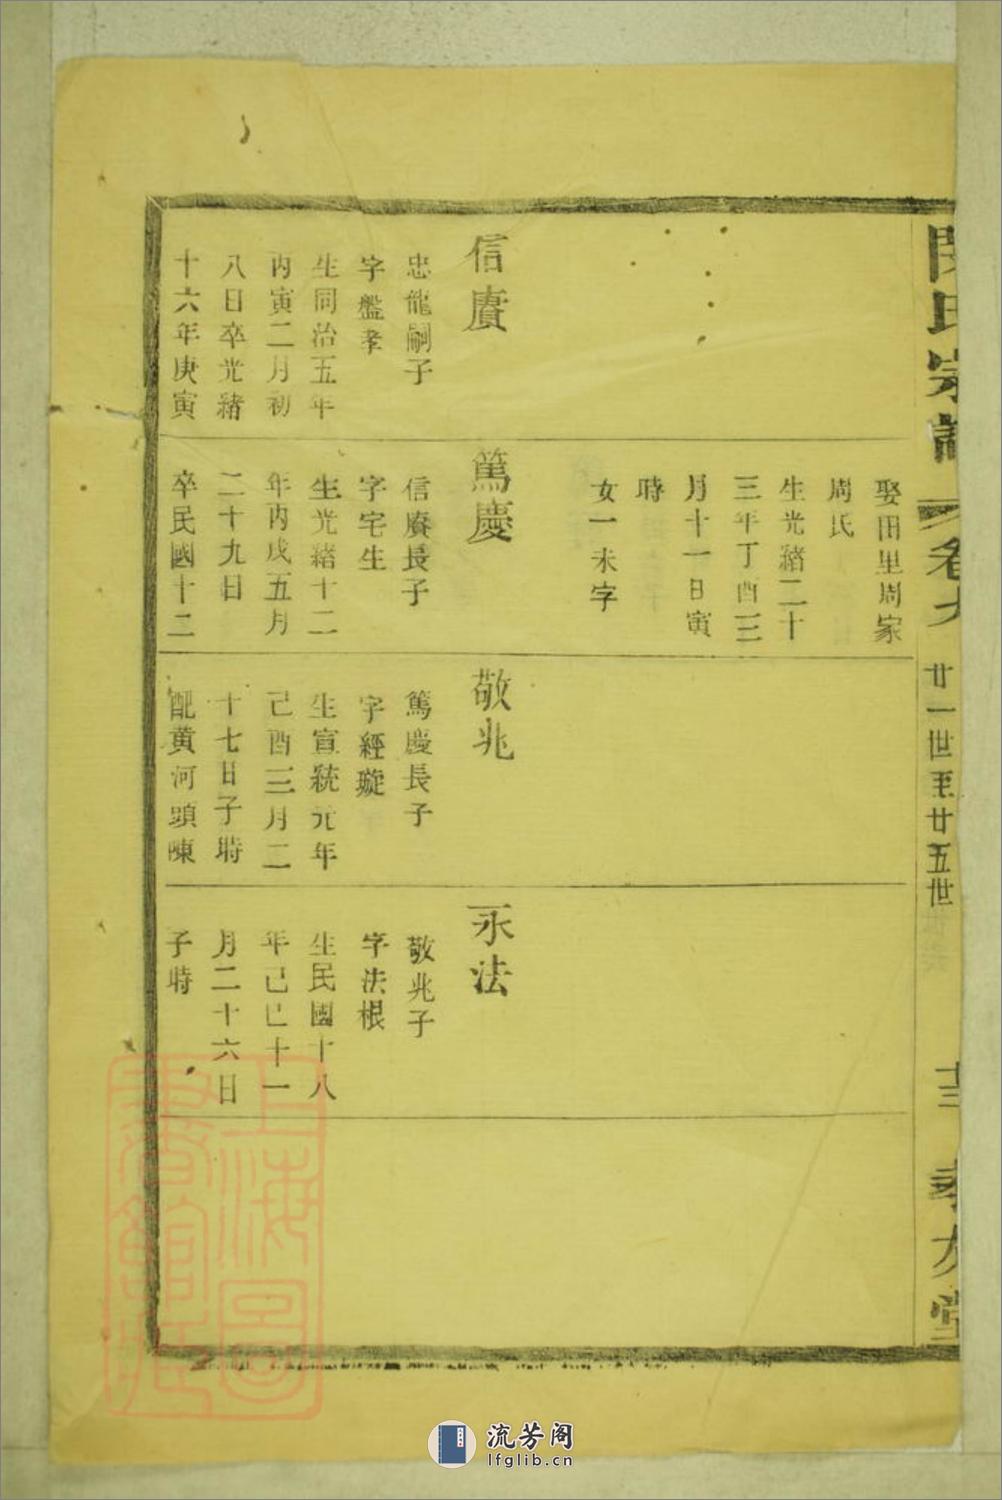 氏宗譜
卷九
廿一世至廿五世
十三
孝友堂
信賡
忠龍嗣子
字盤孝
生同治五年
丙寅二月初
八日卒光緒
十六年庚寅
娶田里周家
周氏
生光緒二十
三年丁酉三
月十一日寅
時
女一未字
篤慶
信賡長子
字宅生
生光緒十二
年丙戌五月
二十九日
卒民國十二
敬兆
篤慶長子
字經璇
生宣統元年
己酉三月二
十七日子時
配黄河頭陳
永法
敬兆子
字法根
生民國十八
年己巳十一
月二十六日
子時
上海圖
書館藏
流芳阁
lfglib.cn